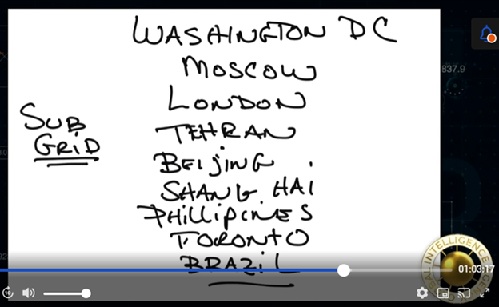 WASHINGTON DC
MOSCOW
LONDON
TEHRAN
BEIJING
SHANG HAI
PHILLIPINES
TORONTO
BRAZIL
SUB
GRID
837.9
01:03:17